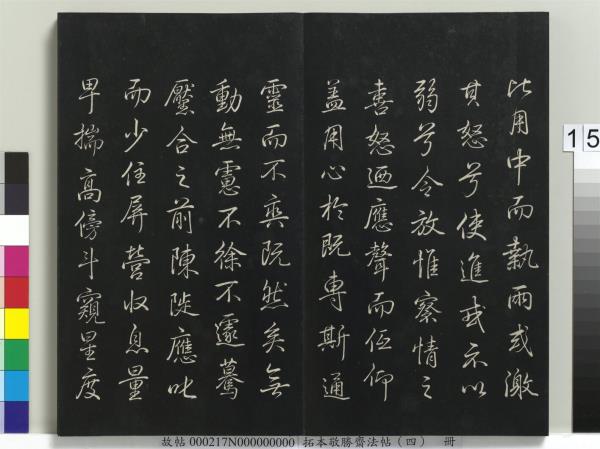 比用中而執兩或激
其怒兮使進或示以
弱兮令放惟察情之
喜怒迺應聲而伍仰
蓋用心於既專斯通
靈而不爽既然矣無
動無慮不徐不遽驀
壓合之前陳陡應叱
而少住屏營收息量
早揣高傍斗窺星度
15
故帖 000217N000000000 拓本敬勝齋法帖（四） 冊